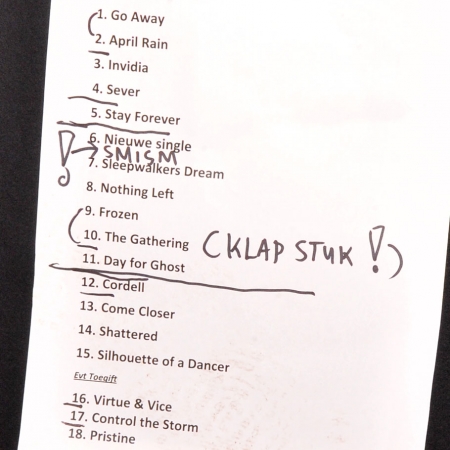 1. Go Away
2. April Rain
3. Invidia
4. Sever
5. Stay Forever
6. Nieuwe single
SMISM
7. Sleepwalkers Dream
8. Nothing Left
9. Frozen
10. The Gathering (KLAP STUK !)
11. Day for Ghost
12. Cordell
13. Come Closer
14. Shattered
15. Silhouette of a Dancer
Evt Toegift
16. Virtue & Vice
17. Control the Storm
18. Pristine